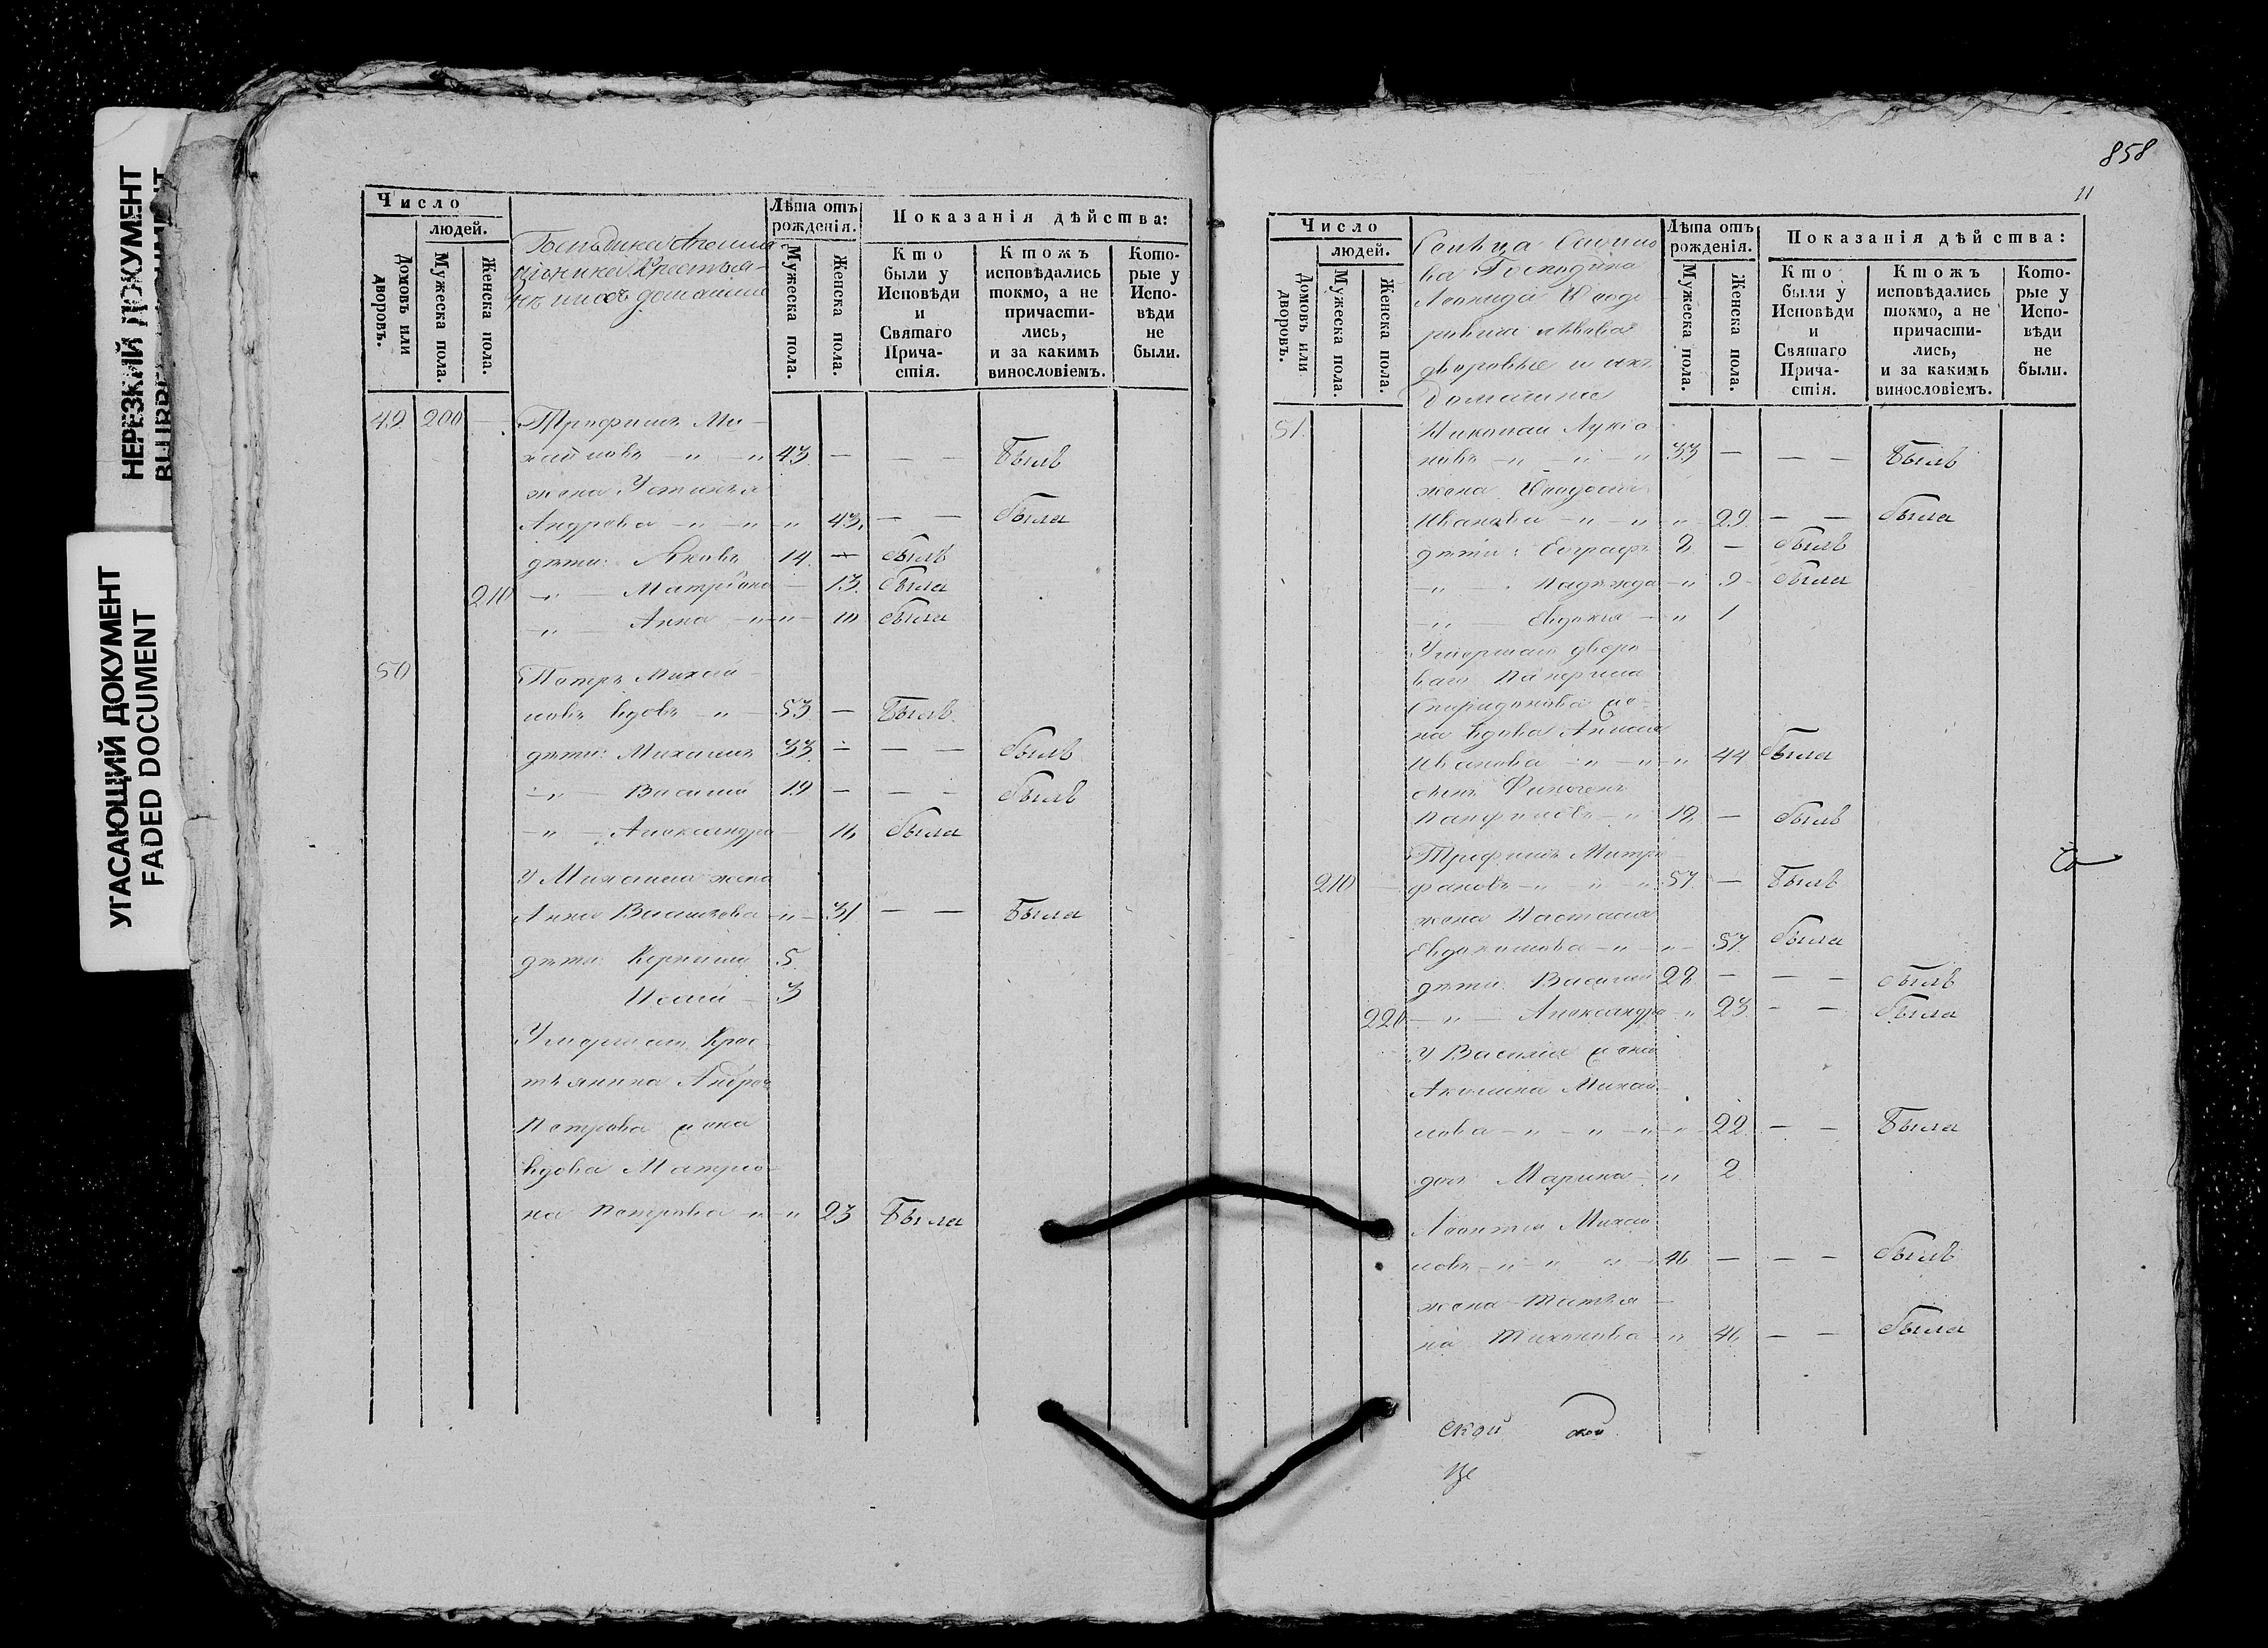 НЕРЕЗКИЙ ДОКУМЕНТ
УГАСАЮЩИЙ ДОКУМЕНТ
FADED DOCUMENT
Число
людей.
Домовъ или дворовъ.
Мужеска пола.
Женска пола.
Господина
Крестья-
Лѣта отъ рожденія.
Мужеска пола.
Женска пола.
Показанія дѣйства:
Кто были у Исповѣди и Святаго Прича-стія.
Ктожъ исповѣдались токмо, а не причасти-лись, и за какимъ винословіемъ.
Кото-рые у Испо-вѣди не были.
49 200 — Трофимъ Ми-
хайловъ — „ — „ 43 — — — Былъ
жена Устинья
Андреева — „ — „ „ 43 — — была
дѣти: Яковъ 14 — былъ
210 — „ — Матрона — 13 была
— „ — Анна — „ — „ — 10 была
50 Петръ Михай-
ловъ вдовъ — „ — 53 — Былъ
дѣти: Михаилъ 33 — — — былъ
— „ — Василий 19 — — — былъ
— „ — Александра — 16 была
У Михаила жена
Анна Васильева — „ — 31 — — Была
дѣти: 5
3
Умершаго Крес-
тьянина Андрея
Петрова жена
вдова Матро-
на Петрова — „ — „ 23 Была
858
11
Число
людей.
Домовъ или дворовъ.
Мужеска пола.
Женска пола.
Сельца
ва Господина
Леонида Ѳеодо
ровича Львова
дворовые и ихъ
домашніе
Лѣта отъ рожденія.
Мужеска пола.
Женска пола.
Показанія дѣйства:
Кто были у Исповѣди и Святаго Прича-стія.
Ктожъ исповѣдались токмо, а не причасти-лись, и за какимъ винословіемъ.
Кото-рые у Испо-вѣди не были.
51. Николай Лукіа
новъ — „ — „ — „ 33 — — — Былъ
жена Ѳеодосія
Иванова — „ — „ „ 29 — — была
дѣти: Евграфъ 8 — былъ
— „ — Надежда — „ 9 была
— „ — Евдокія — „ 1
Умершаго дворо
ваго Панфила
Спиридонова же-
на вдова
Иванова — „ — „ — „ 44 была
сынъ
Панфиловъ — „ 18 — былъ
Трофимъ Митро
210 — фановъ — „ — „ — „ 57 — Былъ
жена Настасья
Евдокимова — „ — „ — 57 была
дѣти: Василий 28 — — — былъ
220 — „ — Александра „ 23 — — была
У Василія жена
Акулина Михай-
лова — „ — „ — „ — „ 22 — — Была
дочь Марина — „ 2
Леонтій Михай
ловъ — „ — „ „ 46 — — — былъ
жена Татья —
на Тихонова — „ 46 — — была
ской